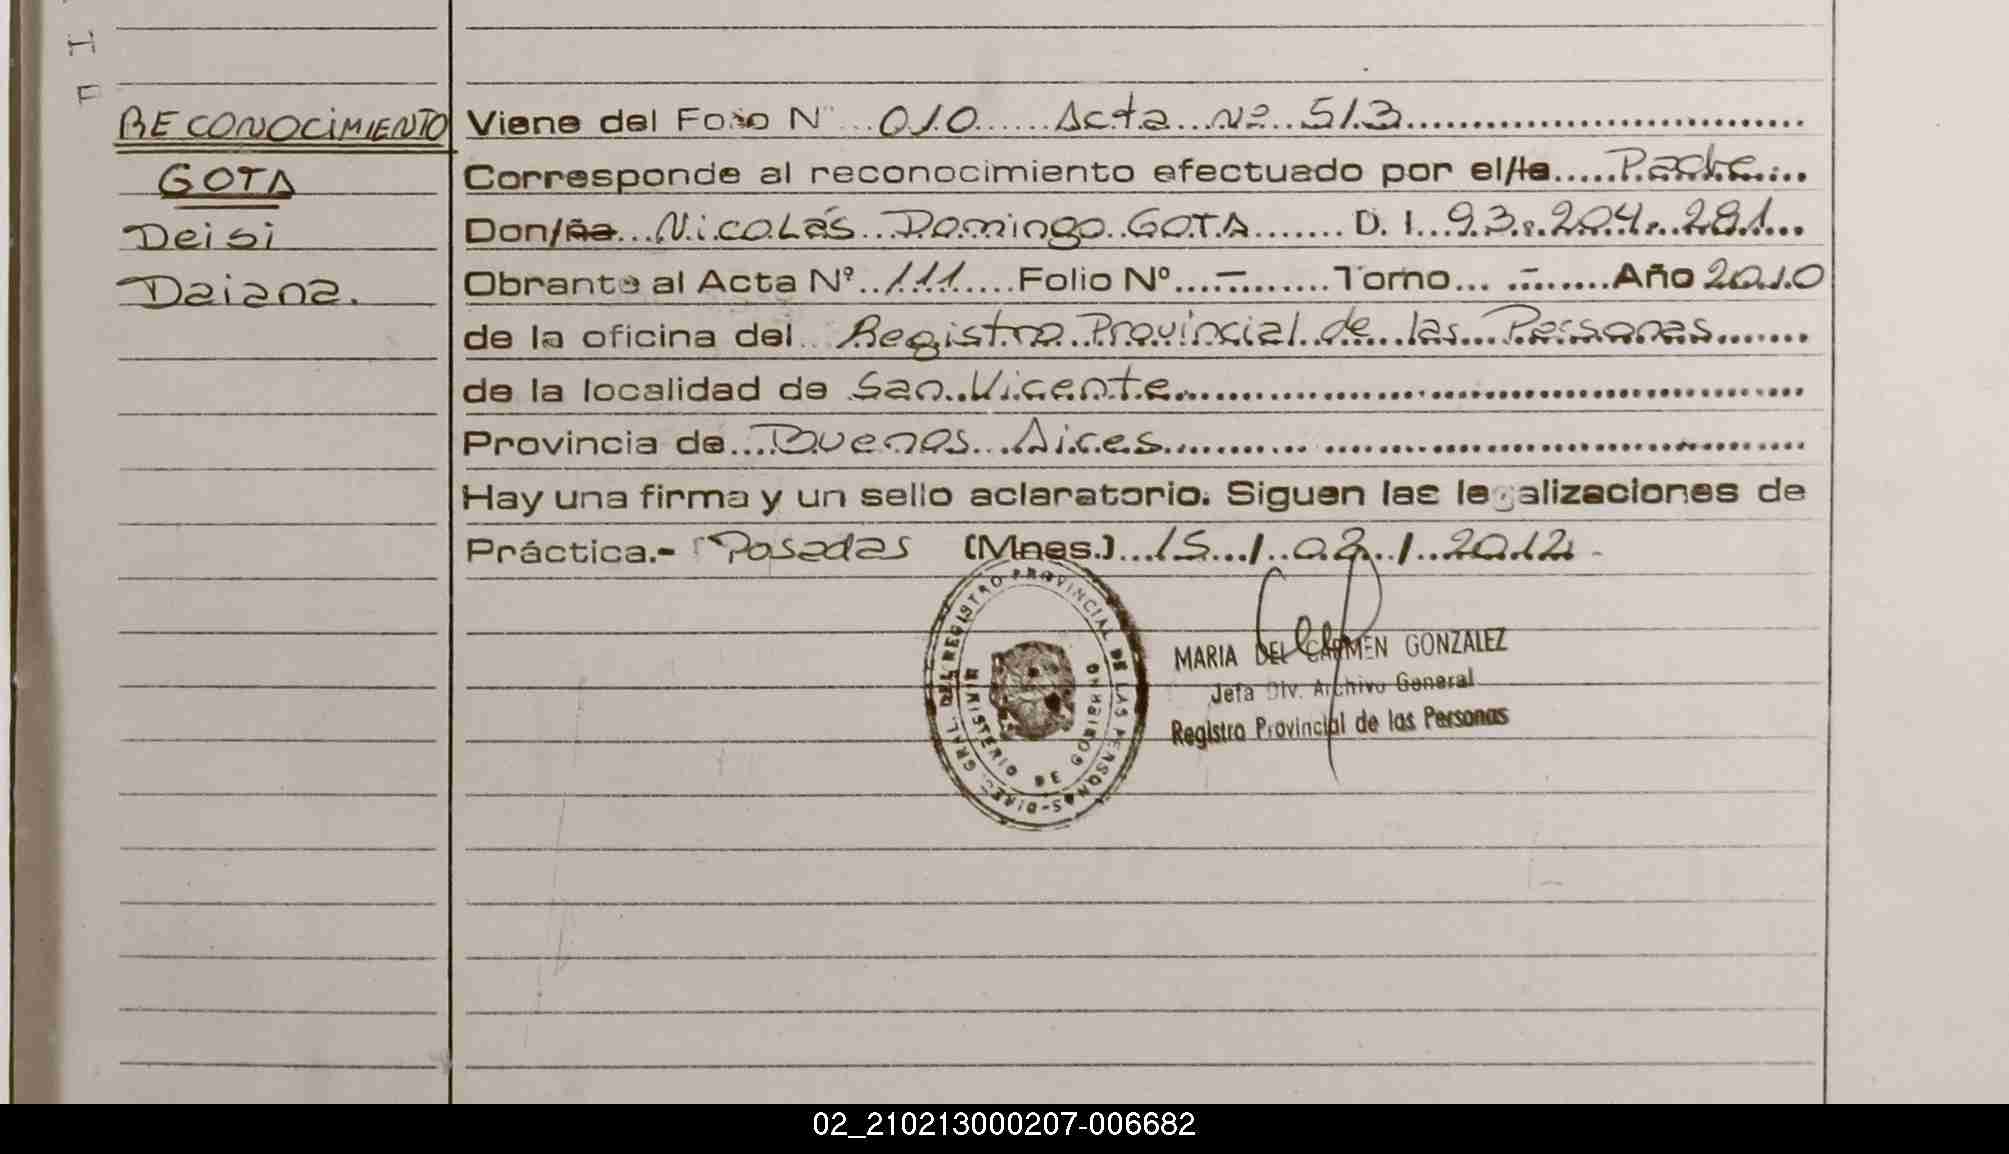 H
F
RECONOCIMIENTO
GOTA
Deisi
Daiana.
Viene del Folio Nº 010 Acta Nº 513
Corresponde al reconocimiento efectuado por el/la Padre
Don/ña Nicolás Domingo GOTA D. I. 93.204.281
Obrante al Acta Nº 111 Folio Nº - Tomo - Año 2010
de la oficina del Registro Provincial de las Personas
de la localidad de San Vicente
Provincia de Buenos Aires
Hay una firma y un sello aclaratorio. Siguen las legalizaciones de
Práctica.- Posadas (Mnes.) 15 / 02 / 2012 -
DIREC. GRAL. DEL REGISTRO PROVINCIAL DE LAS PERSONAS
MINISTERIO DE GOBIERNO
MARIA DEL CARMEN GONZALEZ
Jefa Div. Archivo General
Registro Provincial de las Personas
02_210213000207-006682